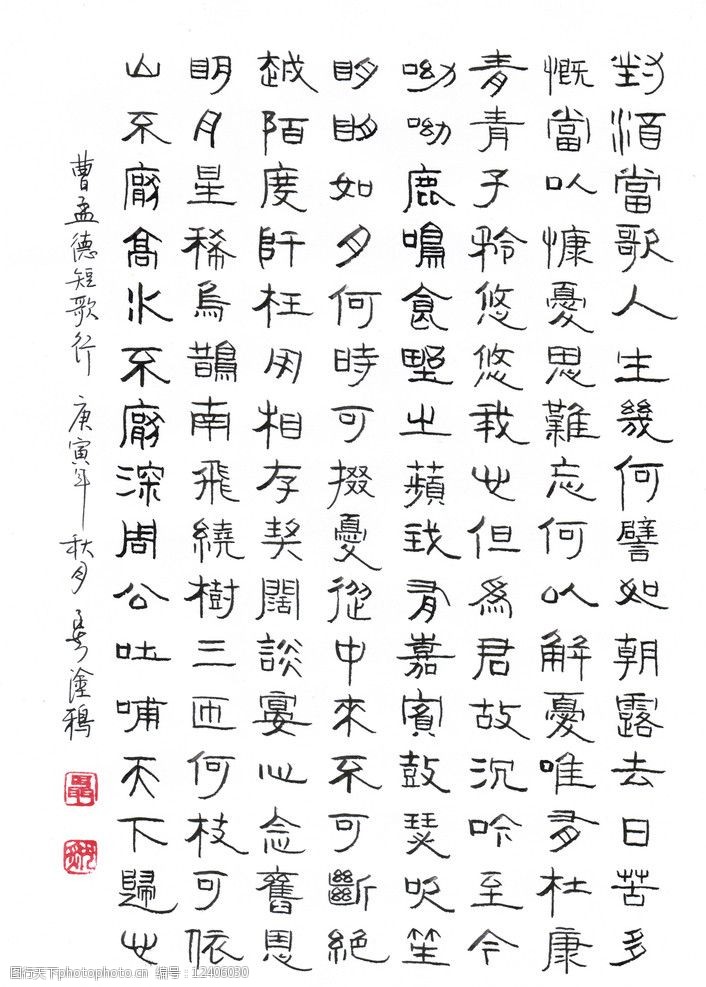 對酒當歌人生幾何譬如朝露去日苦多
慨當以慷憂思難忘何以解憂唯有杜康
青青子衿悠悠我心但為君故沉吟至今
呦呦鹿鳴食野之蘋我有嘉賓鼓瑟吹笙
明明如月何時可掇憂從中來不可斷絕
越陌度阡枉用相存契闊談宴心念舊恩
明月星稀烏鵲南飛繞樹三匝何枝可依
山不厭高水不厭深周公吐哺天下歸心
曹孟德短歌行 庚寅年秋月 塗鴉
图行天下photophoto.cn 编号：12406030